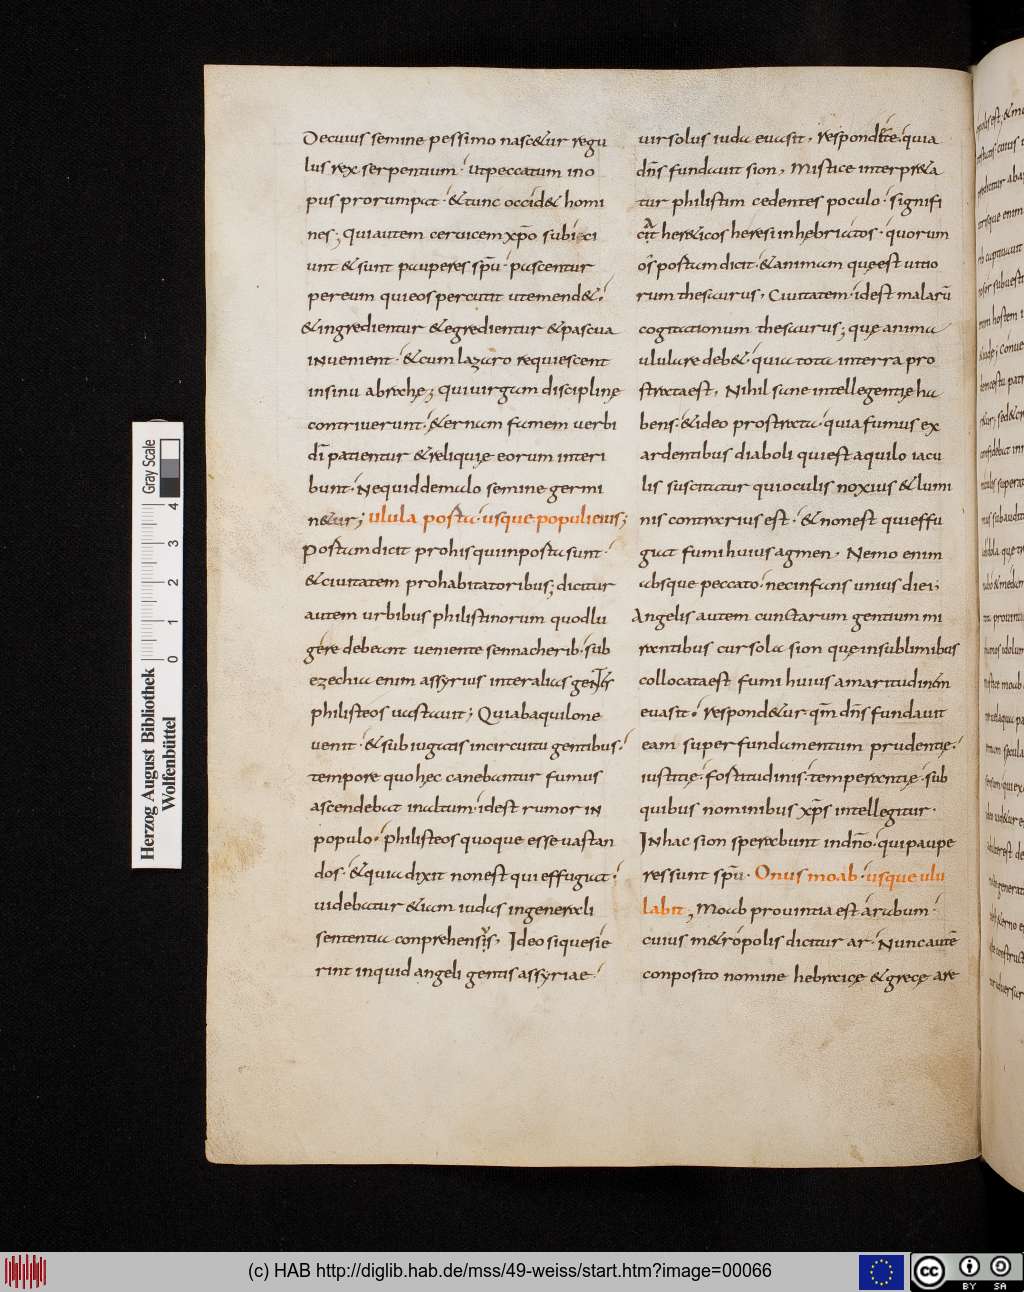 De cuius semine pessimo nascetur regu
lus rex serpentium. ut peccatum in o
pus prorumpat. & tunc occid& homi
nes; qui autem ceruicem xp̄o subieci
unt & sunt pauperes spū. pascentur
per eum qui eos percutit ut emend&.
& ingredientur & egredientur & pascua
inuenient. & cum lazaro requiescent
in sinu abrahę; qui uirgam disciplinę
contriuerunt. &ernam famem uerbi
dī patientur & reliquię eorum interi
bunt. Ne quid de malo semine germi
n&ur; ulula porta. usque populi eius;
Portam dicit pro his qui in porta sunt.
& ciuitatem pro habitatoribus; dicitur
autem urbibus philistinorum quod lu
gere debeant ueniente sennacherib. sub
ezechia enim assyrius inter alias gentes
philisteos uastauit; Quia b aquilone
uenit. & subiugatis in circuitu gentibus.
tempore quo hęc canebantur fumus
ascendebat in altum. id est rumor in
populo. philisteos quoque esse uastan
dos. & quia dixit non est qui effugiat.
uidebatur & iam iudas in generali
sententia conprehensus. Ideo si quesie
rint inquid angeli gentis assyriae.
uir solus iuda euasit. respondete. quia
dn̄s fundauit sion, Mistice interpr&a
tur philistim cedentes poculo. signifi
cat her&icos heresi inhębriatos. quorum
os portam dicit. & animam quę est uitio
rum thesaurus, Ciuitatem. id est malarū
cogitationum thesaurus; quę anima
ululare deb&. quia tota in terra pro
strata est, Nihil sane intellegentię ha
bens. & ideo prostrata. quia fumus ex
ardentibus diaboli qui est aquilo iacu
lis suscitatur qui oculis noxius & lumi
nis contrarius est. & non est qui effu
giat fumi huius agmen, Nemo enim
absque peccato. nec infans unius diei;
Angelis autem cunctarum gentium mi
rantibus cur sola sion quę in sublimibus
collocata est fumi huius amaritudinem
euasit. respond&ur qm̄ dn̄s fundauit
eam super fundamentum prudentię.
iustitię. fortitudinis. temperantię. sub
quibus nominibus xp̄s intellegitur.
In hac sion sperabunt in dn̄o. qui paupe
res sunt spū. Onus moab. usque ulu
labit, Moab prouintia est arabum.
cuius m&ropolis dicitur ar. Nunc autē
conposito nomine hebraicę & gręcę are
Herzog August Bibliothek
Wolfenbüttel
Gray Scale
0 1 2 3 4
(c) HAB http://diglib.hab.de/mss/49-weiss/start.htm?image=00066
cc BY SA